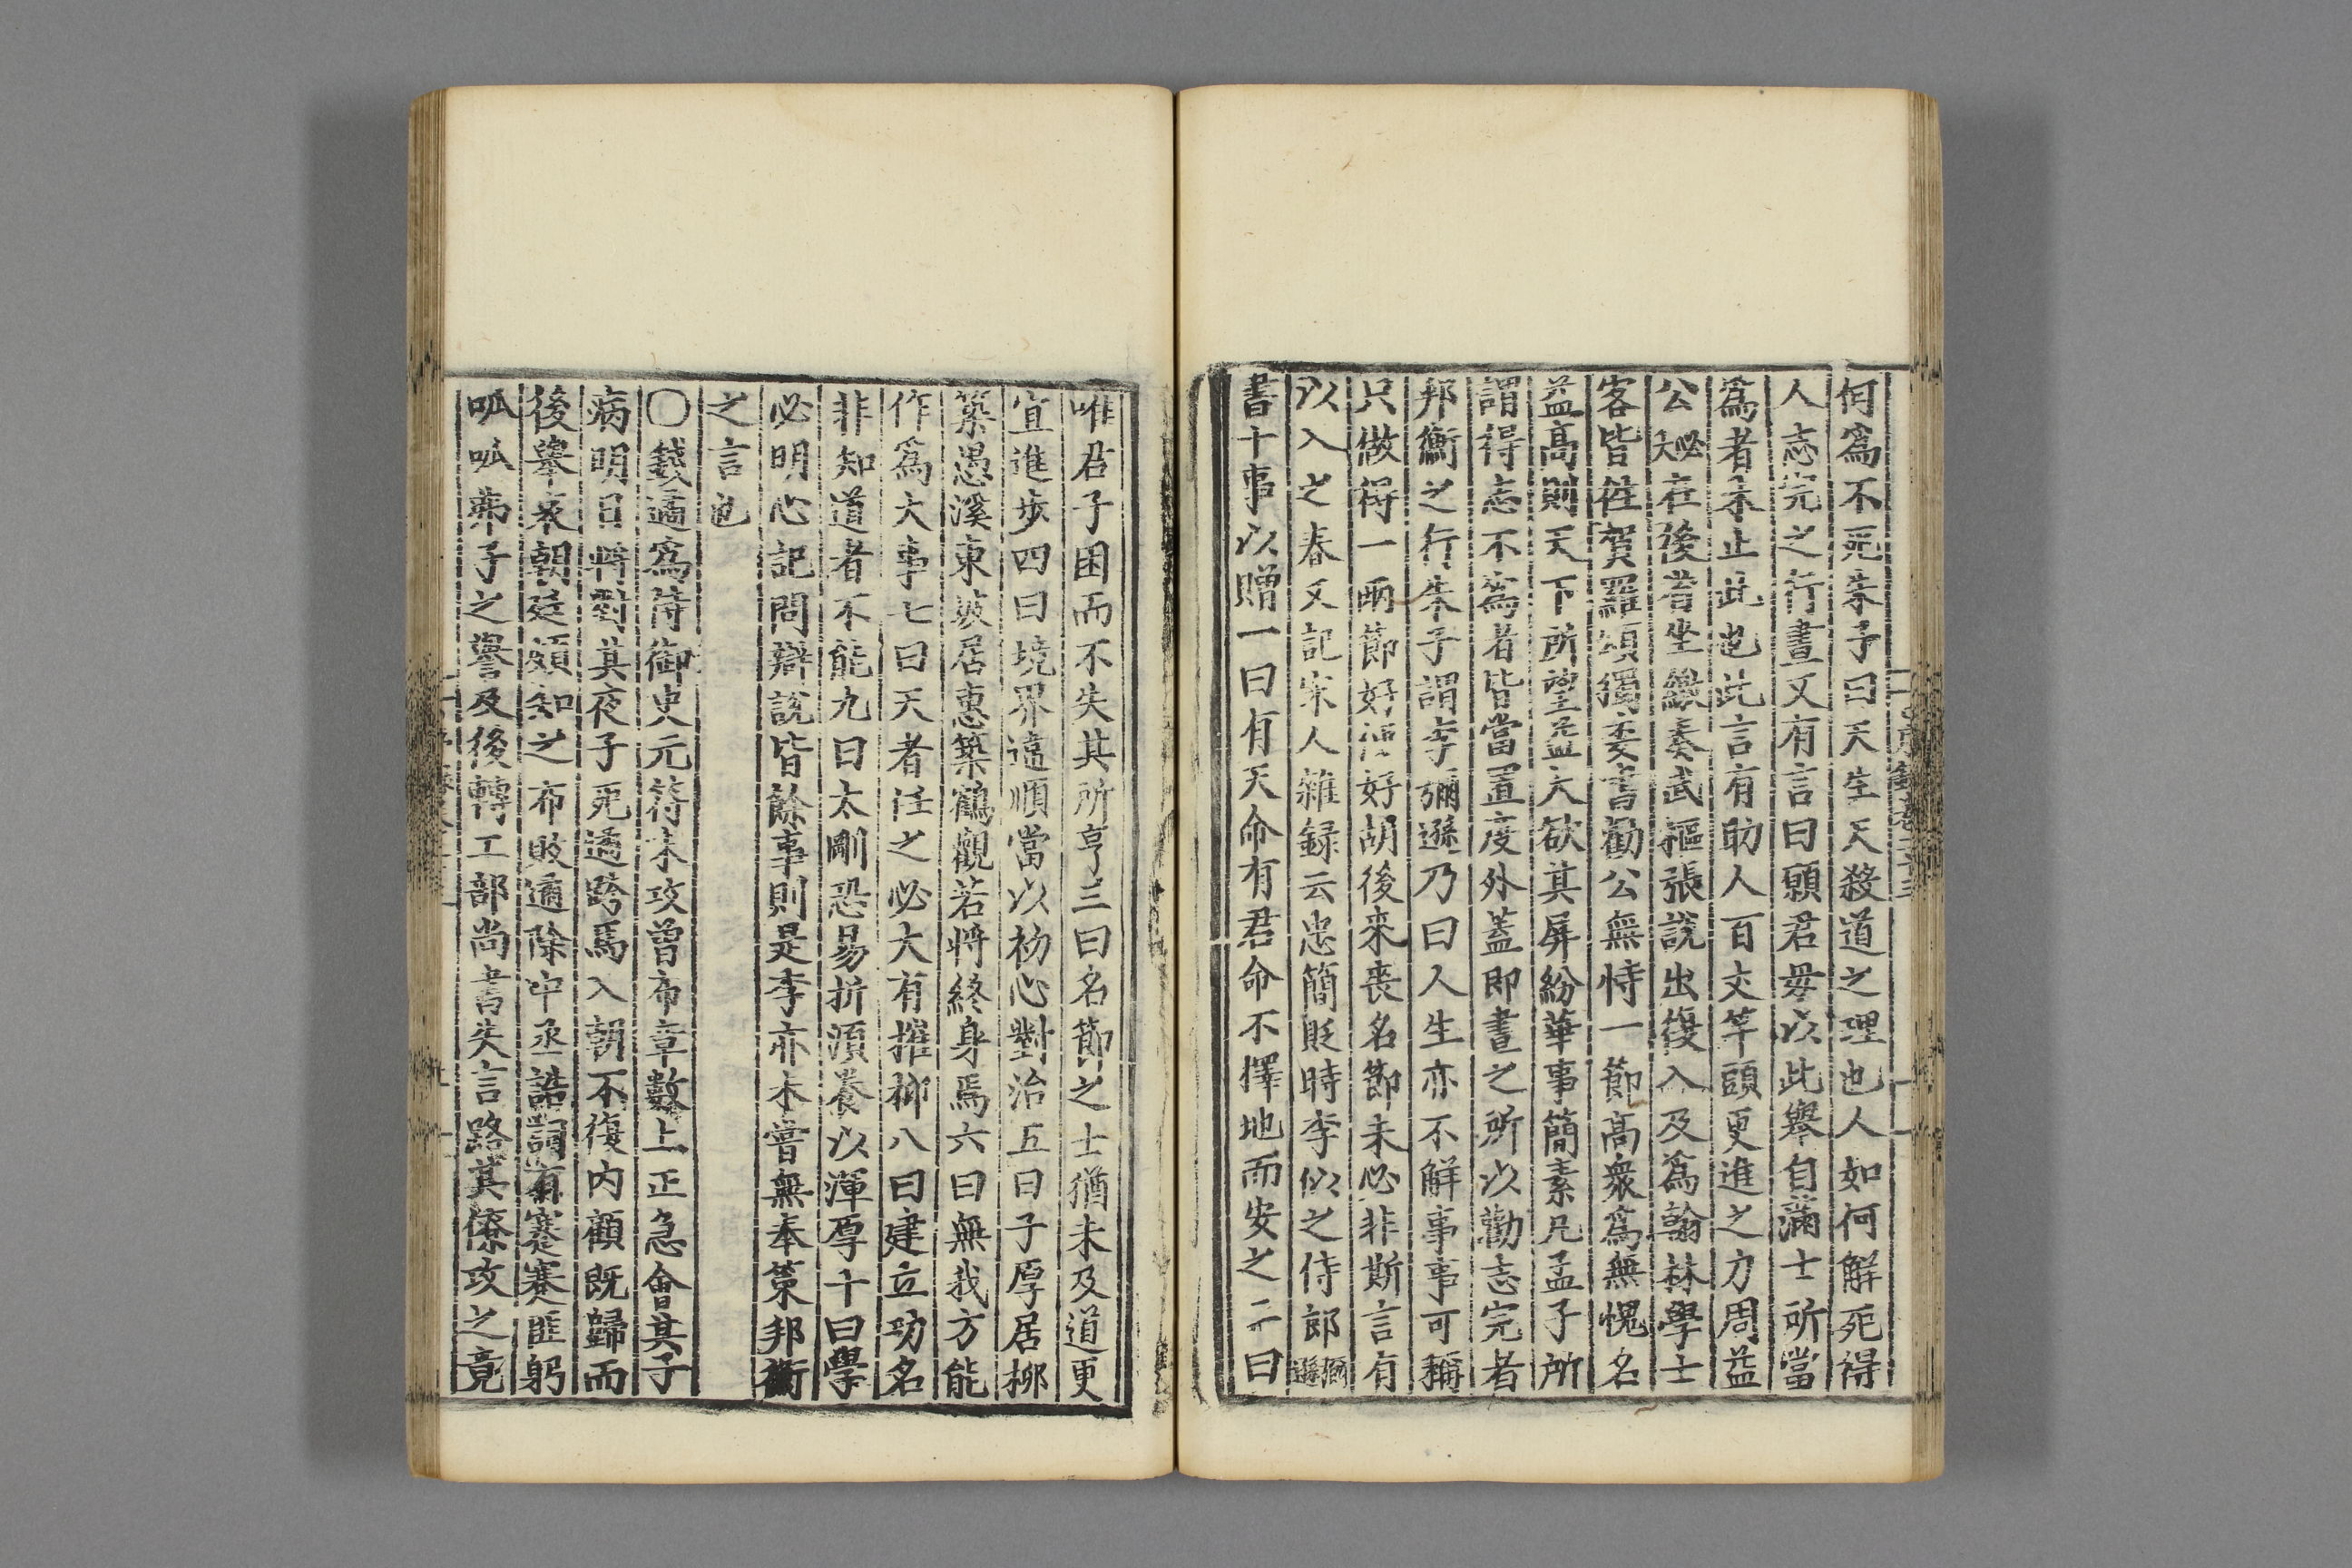 何爲不死朱子曰天生天殺道之理也人如何解死得
人志完之行晝又有言曰願君毋以此舉自滿士所當
爲者未止此也此言有助人百丈竿頭更進之力周益
公必大在後省坐繳奏武樞張說出復入及爲翰林學士
客皆徃賀羅頌獨委書勸公無恃一節高衆爲無愧名
益高則天下所望益大欲其屏紛華事簡素凡孟子所
謂得志不爲者皆當置度外蓋即晝之所以勸志完者
邦衡之行朱子謂李彌遜乃曰人生亦不解事事可稱
只做得一兩節好便好胡後來喪名節未必非斯言有
以入之春又記宋人雜録云忠簡貶時李似之侍郎彌遜
書十事以贈一曰有天命有君命不擇地而安之二曰
唯君子困而不失其所亨三曰名節之士猶未及道更
宜進步四曰境界違順當以初心對治五曰子厚居柳
築愚溪東坡居惠築鶴觀若將終身焉六曰無我方能
作爲大事七曰天者任之必大有摧抑八曰建立功名
非知道者不能九曰太剛恐易折湏養以渾厚十曰學
必明心記問辯說皆餘事則是李亦未嘗無奉策邦衡
之言也
〇錢遹爲侍御史元符末攻曾布章數上正急會其子
病明日將對其夜子死遹跨馬入朝不復内顧既歸而
後舉哀朝廷頗知之布敗遹除中丞誥詞有蹇蹇匪躬
呱呱弗子之譽及後轉工部尚書失言路其僚攻之竟